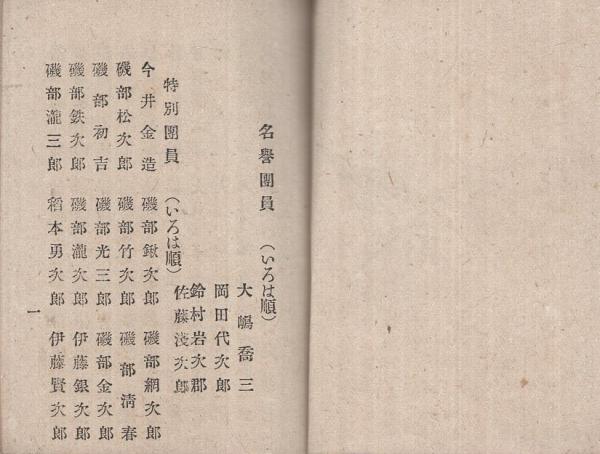 名譽團員 (いろは順)
大嶋喬三
岡田代次郎
鈴村岩次郡
佐藤淺次郎
特別團員 (いろは順)
今井金造 磯部鍬次郎 磯部網次郎
磯部松次郎 磯部竹次郎 磯部淸春
磯部初吉 磯部光三郎 磯部金次郎
磯部鉄次郎 磯部瀧次郎 伊藤銀次郎
磯部瀧三郎 稻本勇次郎 伊藤賢次郎
一